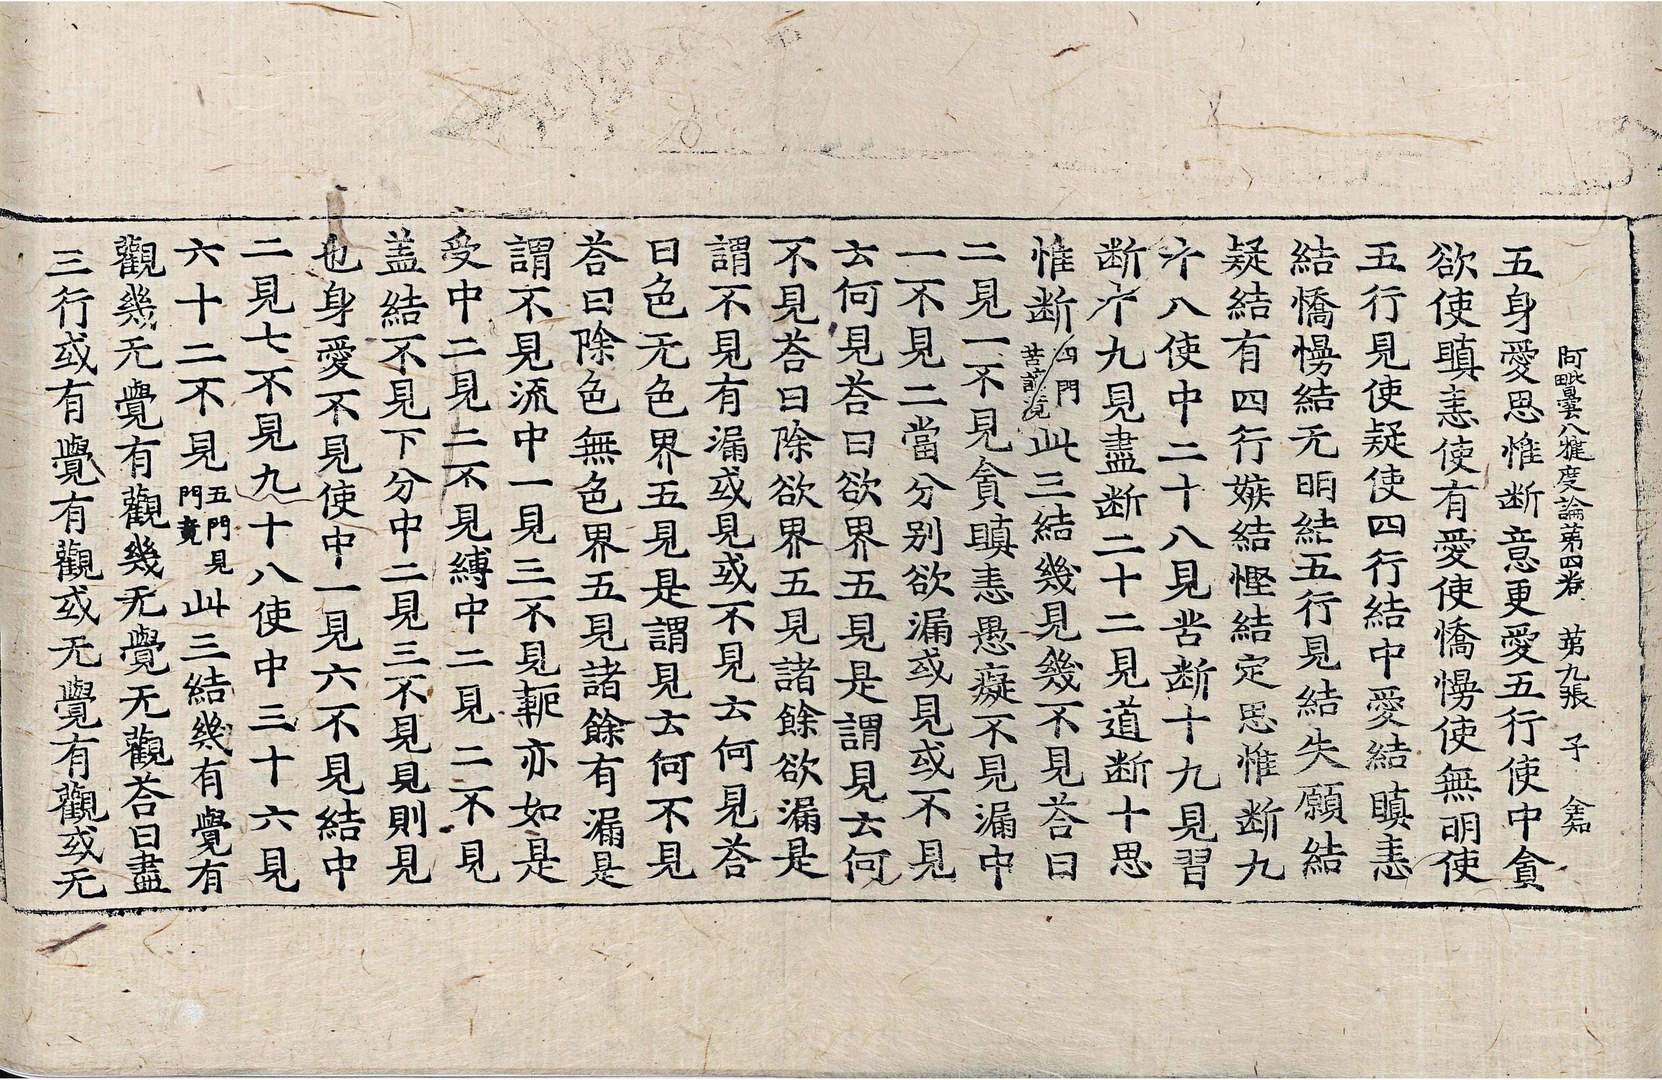 阿毗曇八犍度論苐四卷　苐九張　子　金知
五身愛思惟断意更愛五行使中貪
欲使瞋恚使有愛使憍慢使無明使
五行見使疑使四行結中愛結瞋恚
結憍慢結无明結五行見結失願結
疑結有四行嫉結慳結定思惟断九
十八使中二十八見苦断十九見習
断十九見盡断二十二見道断十思
惟断四門苦諦竟此三結幾見幾不見荅曰
二見一不見貪瞋恚愚癡不見漏中
一不見二當分别欲漏或見或不見
云何見荅曰欲界五見是謂見云何
不見荅曰除欲界五見諸餘欲漏是
謂不見有漏或見或不見云何見荅
曰色无色界五見是謂見云何不見
荅曰除色無色界五見諸餘有漏是
謂不見流中一見三不見軛亦如是
受中二見二不見縛中二見二不見
盖結不見下分中二見三不見見則見
也身愛不見使中一見六不見結中
二見七不見九十八使中三十六見
六十二不見五門見門竟此三結幾有覺有
觀幾无覺有觀幾无覺无觀荅曰盡
三行或有覺有觀或无覺有觀或无